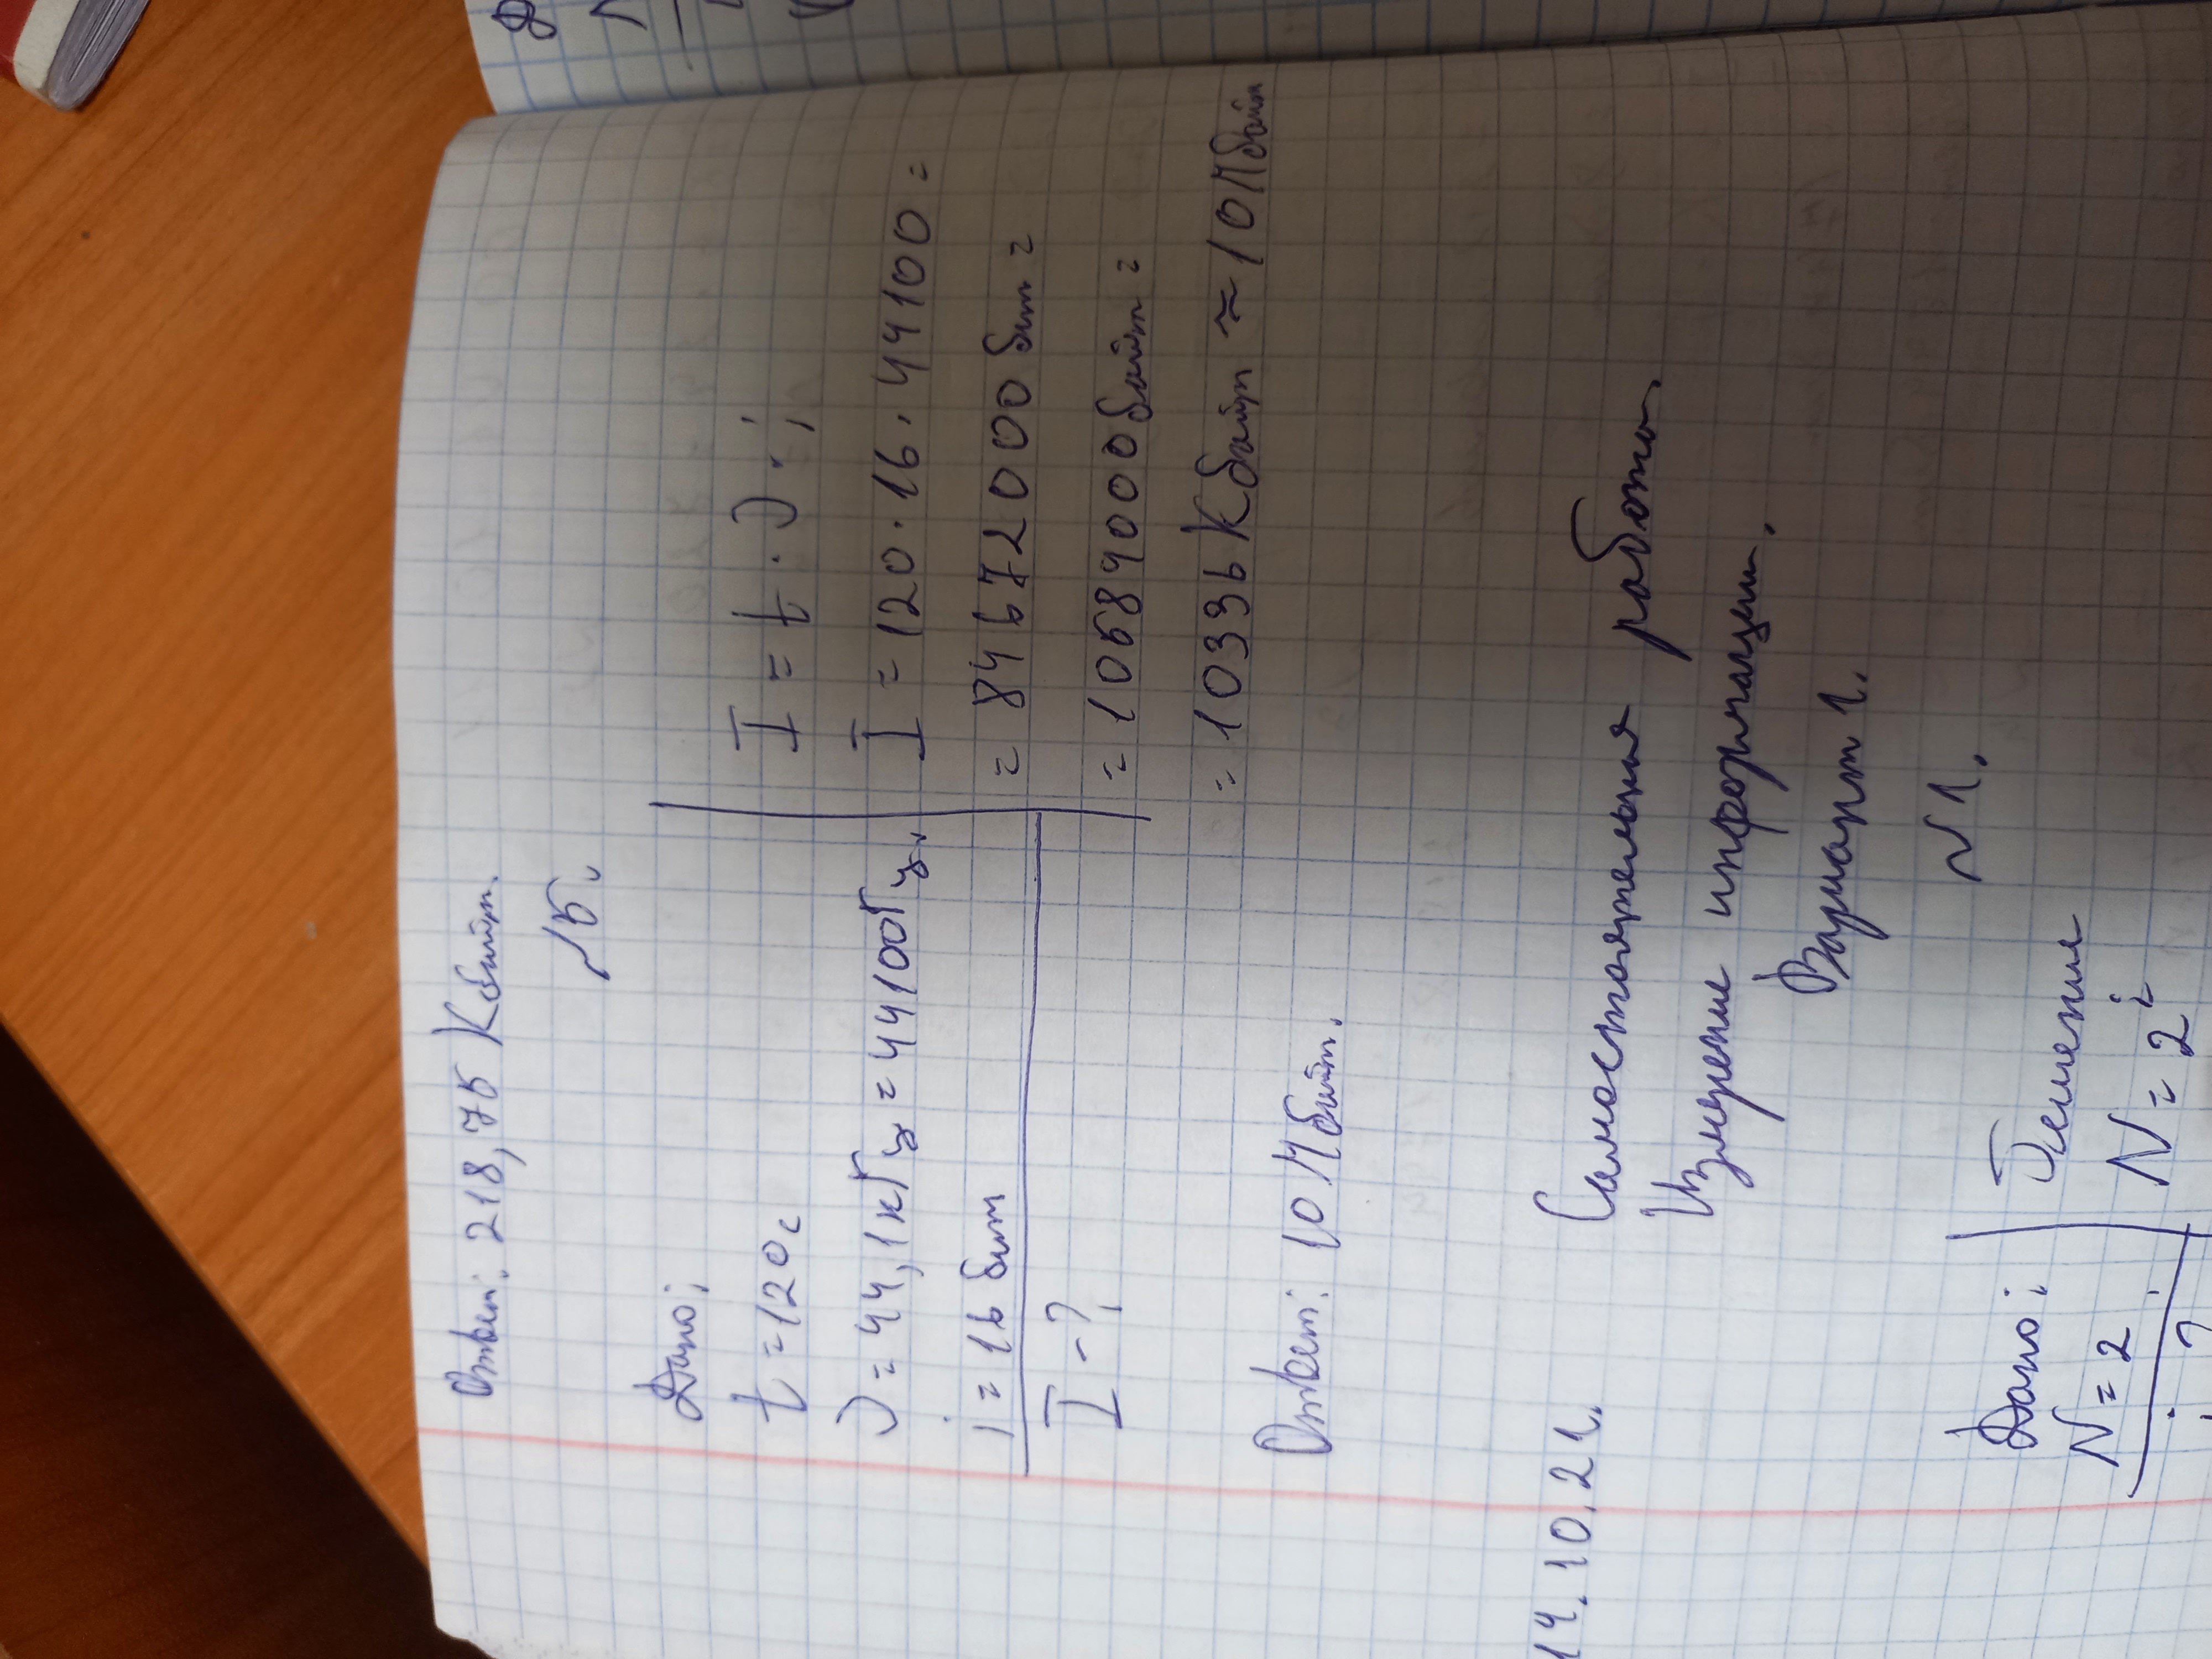 Ответ: 218,75 Кбайт.
№5.
Дано:
t = 120с
I = t · ν · i
ν = 44,1кГц = 44100Гц.
I = 120 · 16 · 44100 =
i = 16 бит
= 84672000 бит =
I - ?
= 10584000 байт =
= 10336 Кбайт ≈ 10 Мбайт
Ответ: 10 Мбайт.
14.10.21.
Самостоятельная работа.
Измерение информации.
Вариант 1.
№1.
Дано:
Решение
N = 2
N = 2^i
i - ?